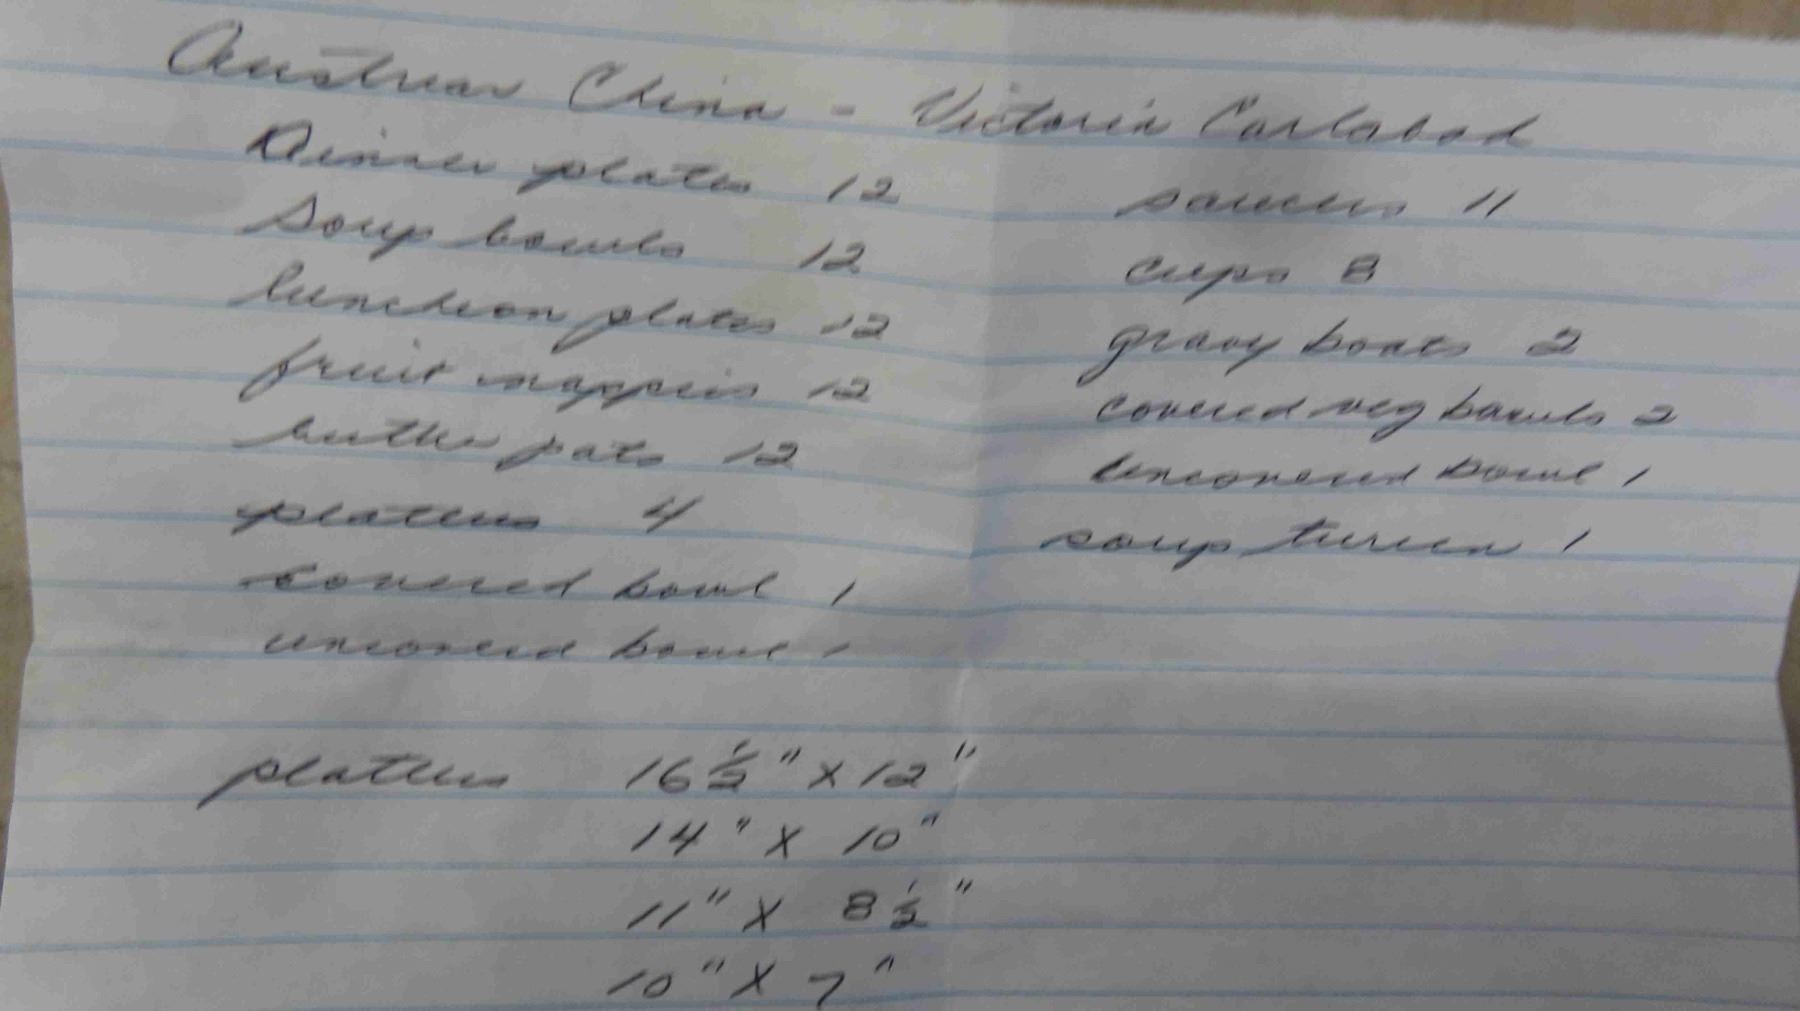 Austrian China - Victoria Carlsbad
Dinner plates 12
Soup bowls 12
luncheon plates 12
fruit nappies 12
butter pats 12
platters 4
covered bowl 1
uncovered bowl 1
saucers 11
cups 8
gravy boats 2
covered veg bowls 2
uncovered bowl 1
soup tureen 1
platters 16 1/2" X 12"
14" X 10"
11" X 8 1/2"
10" X 7"